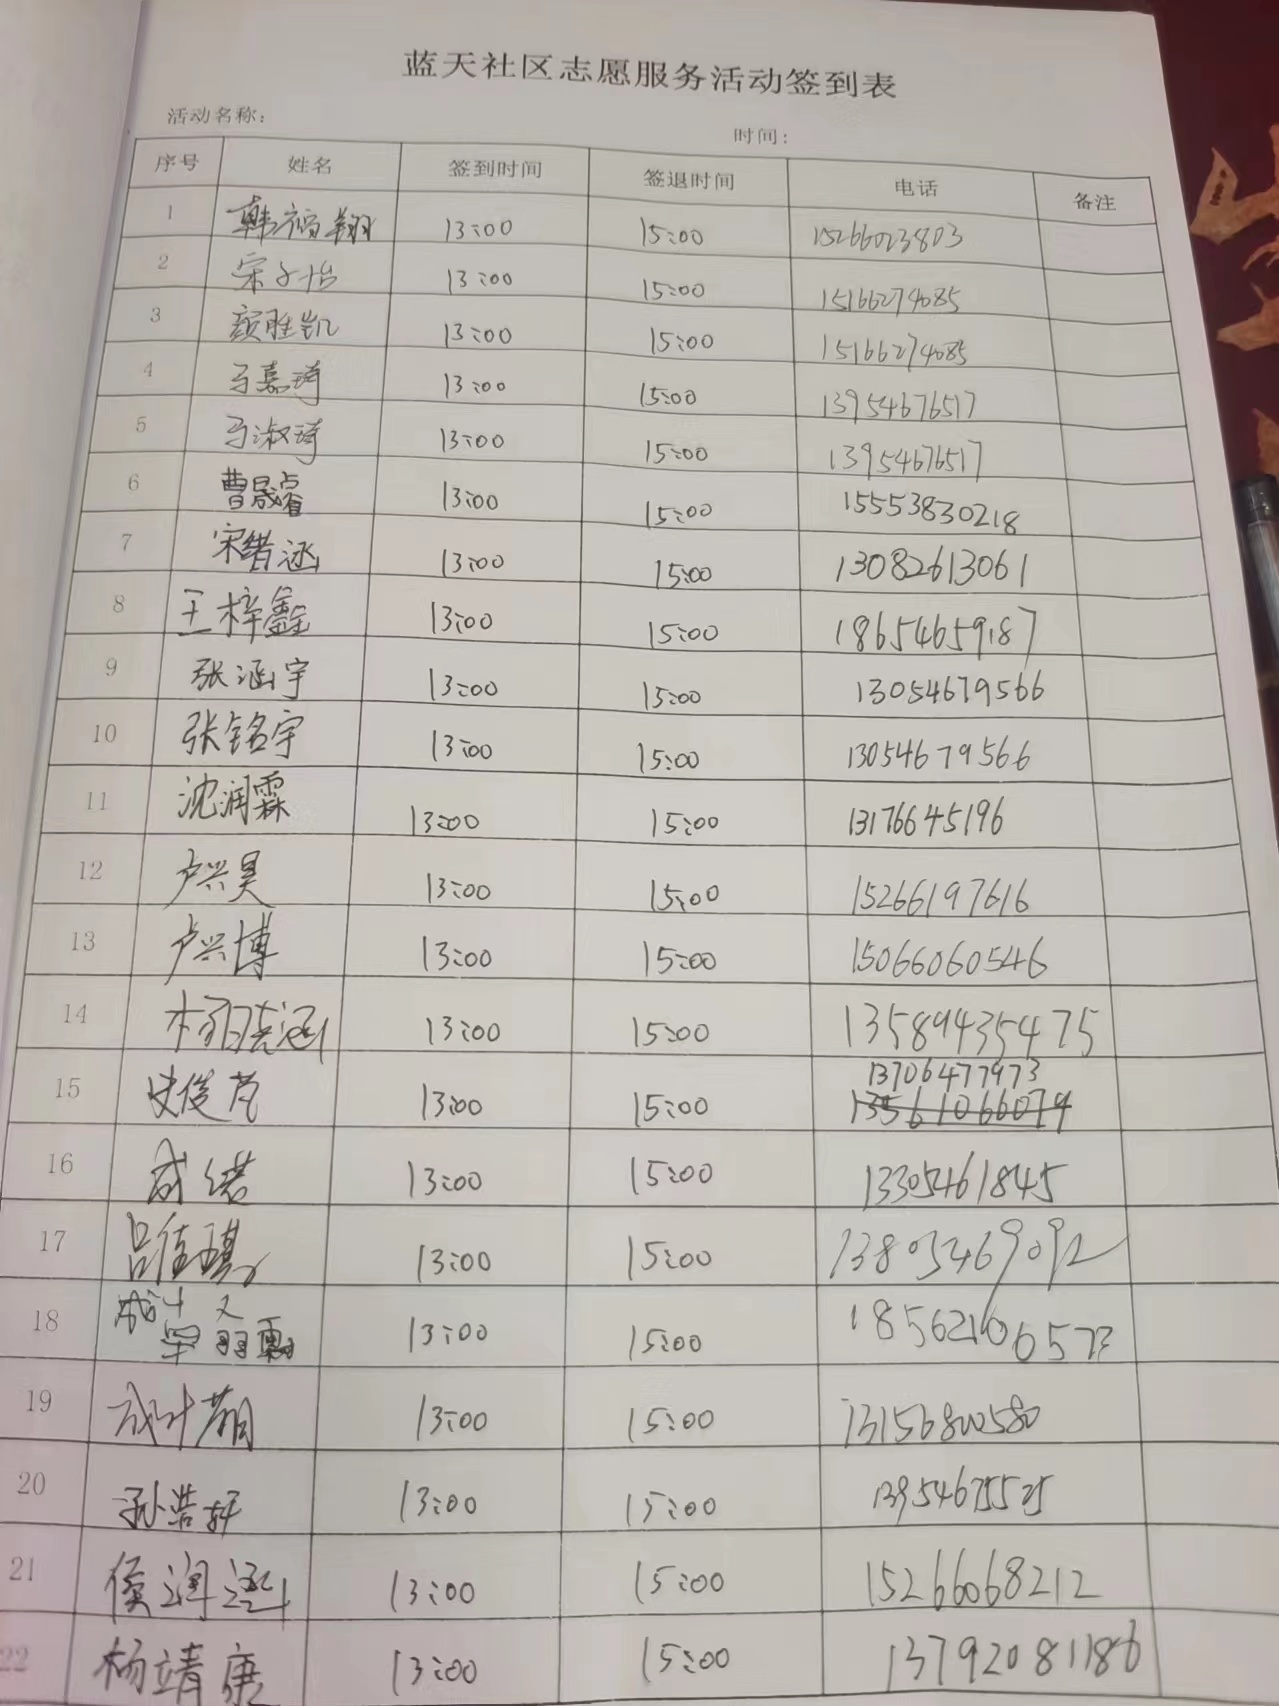 蓝天社区志愿服务活动签到表
活动名称： 时间：
序号 姓名 签到时间 签退时间 电话 备注
1 韩福翔 13:00 15:00 15266023803
2 宋子怡 13:00 15:00 15166274085
3 颜胜凯 13:00 15:00 15166274085
4 马嘉琦 13:00 15:00 13954676517
5 马淑琦 13:00 15:00 13954676517
6 曹晟睿 13:00 15:00 15553830218
7 宋绪涵 13:00 15:00 13082613061
8 王梓鑫 13:00 15:00 18654659187
9 张涵宇 13:00 15:00 13054679566
10 张铭宇 13:00 15:00 13054679566
11 沈润霖 13:00 15:00 13176645196
12 卢兴昊 13:00 15:00 15266197616
13 卢兴博 13:00 15:00 15066060546
14 13:00 15:00 13589435475
15 史俊芃 13:00 15:00 13706477973
13561066079
16 成绪 13:00 15:00 13305461845
17 吕佳琪 13:00 15:00
18 13:00 15:00
19 成叶萌 13:00 15:00 13156800580
20 孙浩轩 13:00 15:00
21 侯润涵 13:00 15:00 15266068212
22 杨靖康 13:00 15:00 13792081186